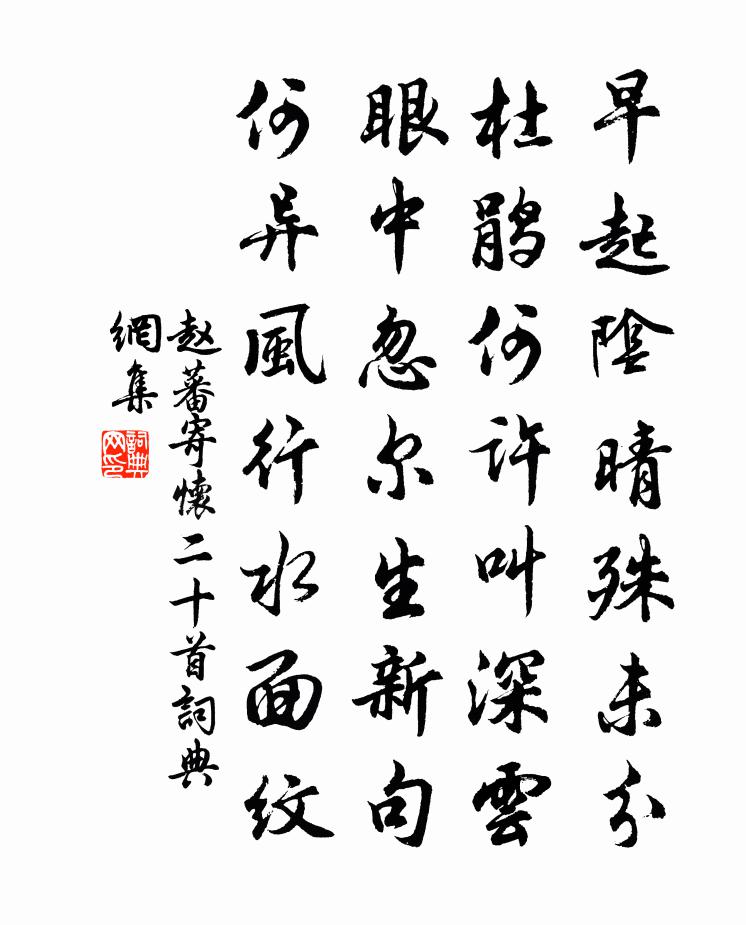 早起陰晴殊未分
杜鹃何許叫深雲
眼中忽尔生新句
何异風行水面纹
赵蕃寄懷二十首詞典
網集
詞典
网印